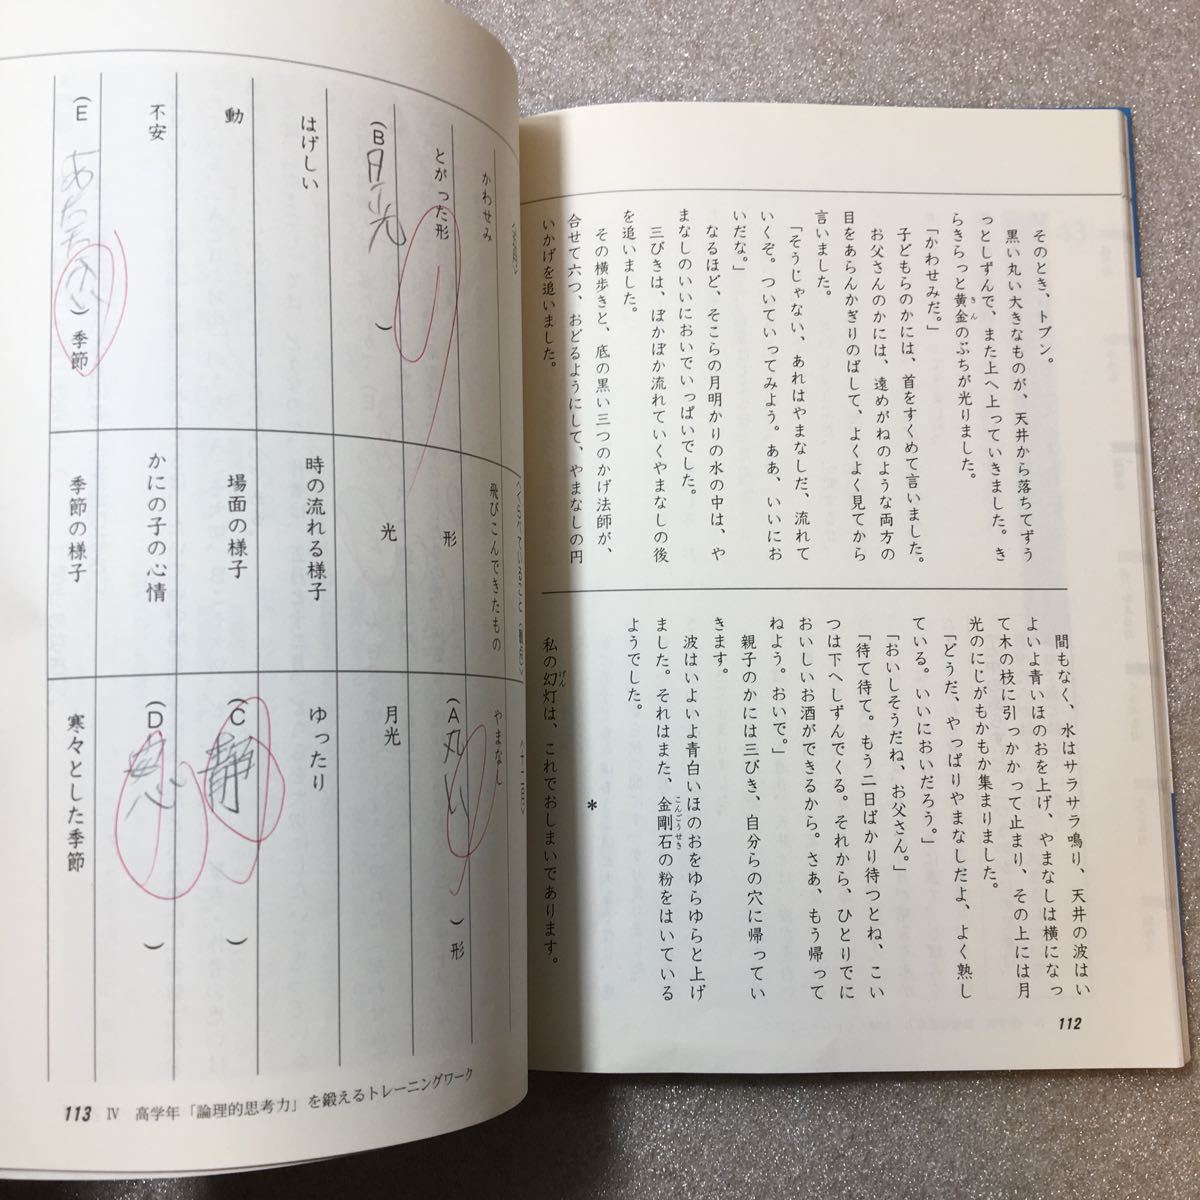 そのとき、トブン。
黒い丸い大きなものが、天井から落ちてずう
っとしずんで、また上へ上っていきました。き
らきらっと黄金のぶちが光りました。
きん
「かわせみだ。」
子どもらのかには、首をすくめて言いました。
お父さんのかには、遠めがねのような両方の
目をあらんかぎりのばして、よくよく見てから
言いました。
「そうじゃない、あれはやまなしだ、流れて
いくぞ。ついていってみよう。ああ、いいにお
いだな。」
なるほど、そこらの月明かりの水の中は、や
まなしのいいにおいでいっぱいでした。
三びきは、ぽかぽか流れていくやまなしの後
を追いました。
その横歩きと、底の黒い三つのかげ法師が、
合せて六つ、おどるようにして、やまなしの円
いかげを追いました。
間もなく、水はサラサラ鳴り、天井の波はい
よいよ青いほのおを上げ、やまなしは横になっ
て木の枝に引っかかって止まり、その上には月
光のにじがもかもか集まりました。
「どうだ、やっぱりやまなしだよ、よく熟し
ている。いいにおいだろう。」
「おいしそうだね、お父さん。」
「待て待て。もう二日ばかり待つとね、こい
つは下へしずんでくる。それから、ひとりでに
おいしいお酒ができるから。さあ、もう帰って
ねよう。おいで。」
親子のかには三びき、自分らの穴に帰ってい
きます。
波はいよいよ青白いほのおをゆらゆらと上げ
ました。それはまた、金剛石の粉をはいている
こんごうせき
ようでした。
*
私の幻灯は、これでおしまいであります。
げん
112
〈くらべていること(観点)〉
かわせみ
飛びこんできたもの
やまなし
とがった形
形
(A 丸い )形
(B 日光 )
光
月光
はげしい
時の流れる様子
ゆったり
動
場面の様子
(C 静 )
不安
かにの子の心情
(D 安心 )
(E あたたかい)季節
季節の様子
寒々とした季節
113 Ⅳ 高学年「論理的思考力」を鍛えるトレーニングワーク